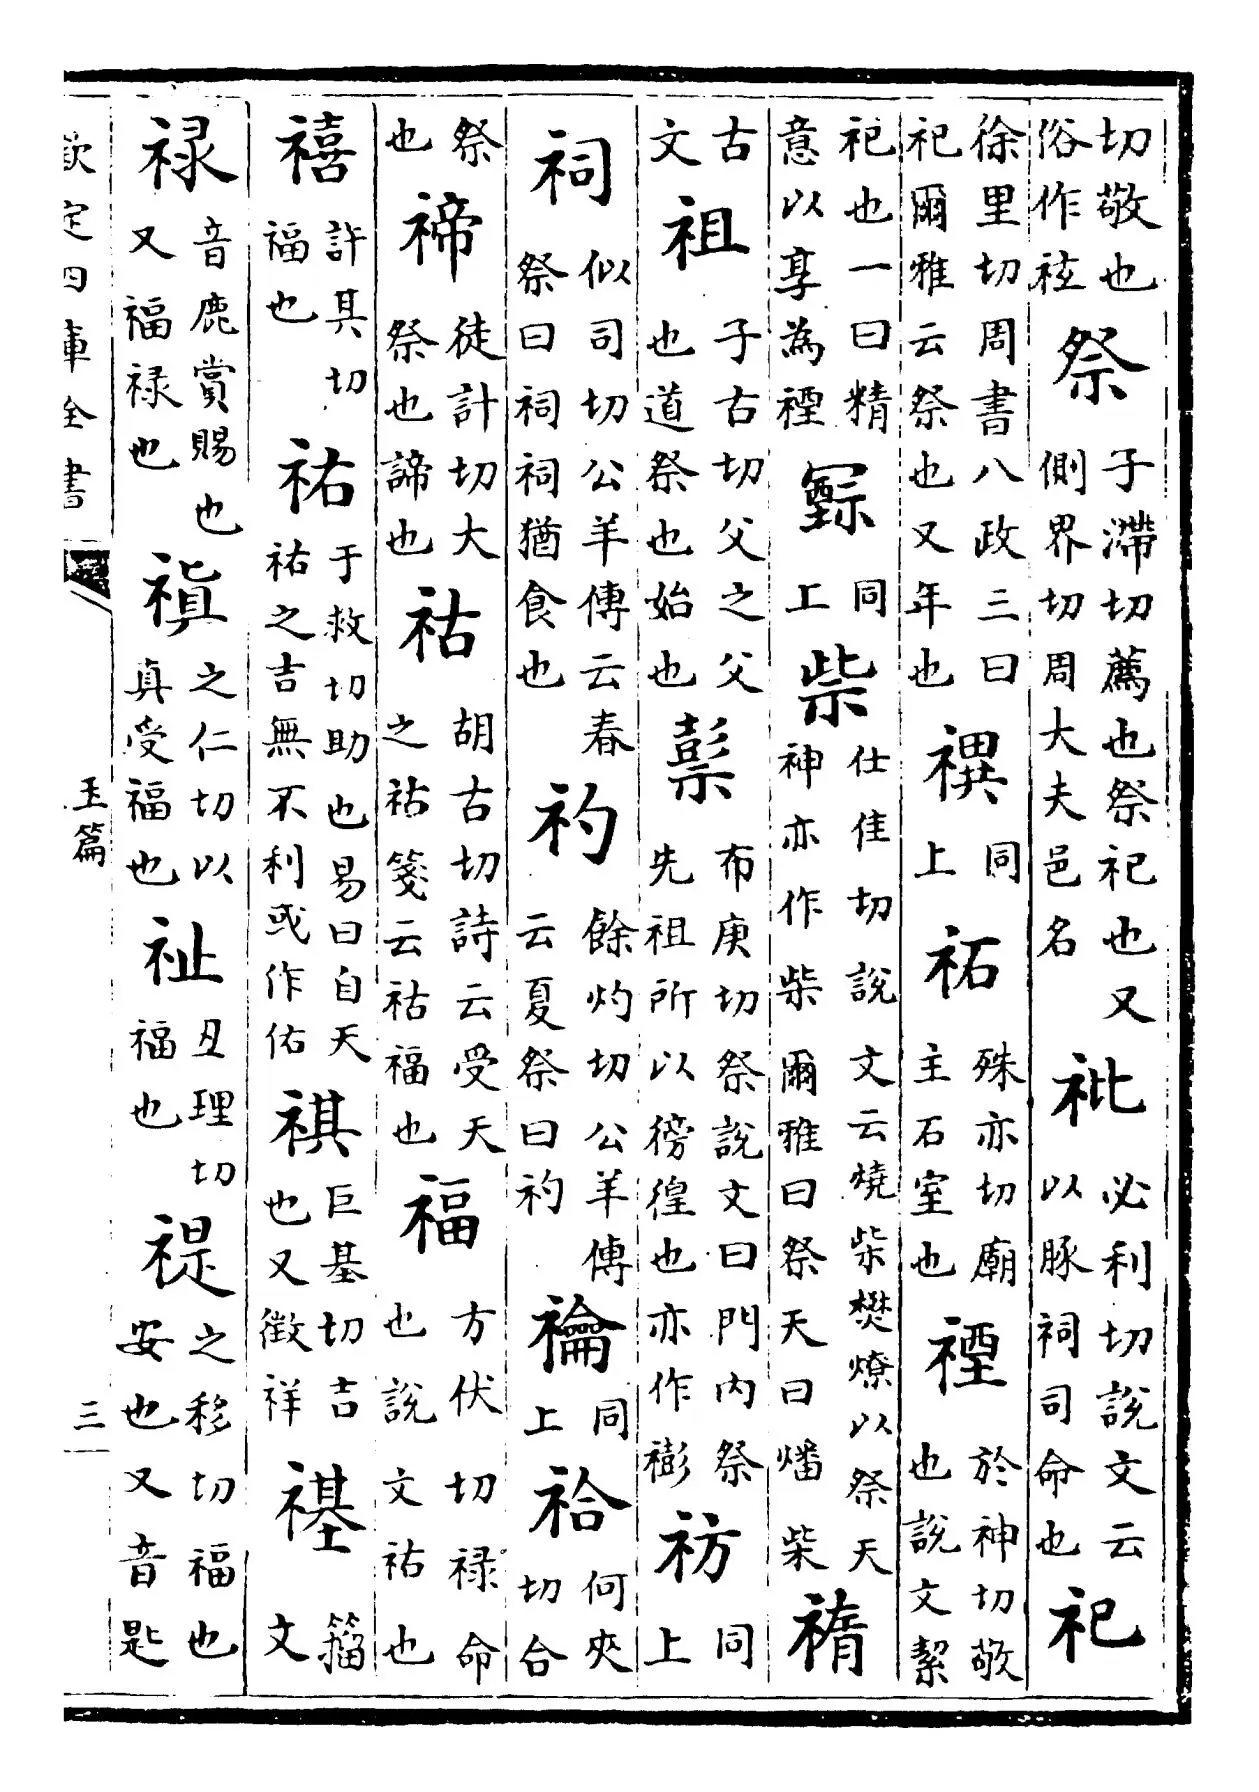 切敬也俗作秪祭子滯切薦也祭祀也又側界切周大夫邑名祉必利切說文云以豚祠司命也祀
徐里切周書八政三曰祀爾雅云祭也又年也禩同上祏殊亦切廟主石室也禋於神切敬也說文絜
祀也一曰精意以享為禋同上祡仕佳切說文云燒柴樊燎以祭天神亦作柴爾雅曰祭天曰燔柴禂
古文祖子古切父之父也道祭也始也䰃布庚切祭說文曰門內祭先祖所以徬徨也亦作𥛱祊同上
祠似司切公羊傳云春祭曰祠祠猶食也礿餘灼切公羊傳云夏祭曰礿禴同上祫何夾切合
祭也禘徒計切大祭也諦也祜胡古切詩云受天之祜箋云祜福也福方伏切祿命也說文祐也
禧許其切福也祐于救切助也易曰自天祐之吉無不利或作佑祺巨基切吉也又徵祥禥籀文
禄音鹿賞賜也又福禄也禛之仁切以真受福也祉丑理切福也禔之移切福也安也又音匙
欽定四庫全書
玉篇
三